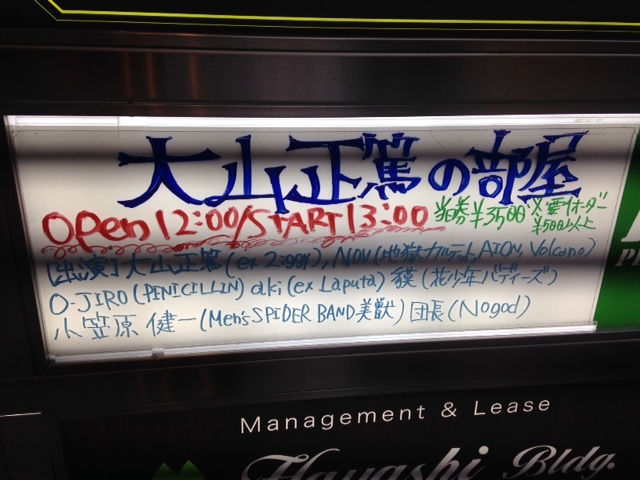 大山正篤の部屋
Open 12:00/START 13:00 当券¥3500 ※要1オーダー ¥500以上
【出演】大山正篤(ex ZIGGY), NOV(地獄カルテット, AION, Volcano)
O-JIRO(PENICILLIN) aki(ex Laputa) 貘(花少年バディーズ)
小笠原 健一(Men's SPIDER BAND美獣) 団長(Nogod)
Management & Lease
Hayashi Bldg.